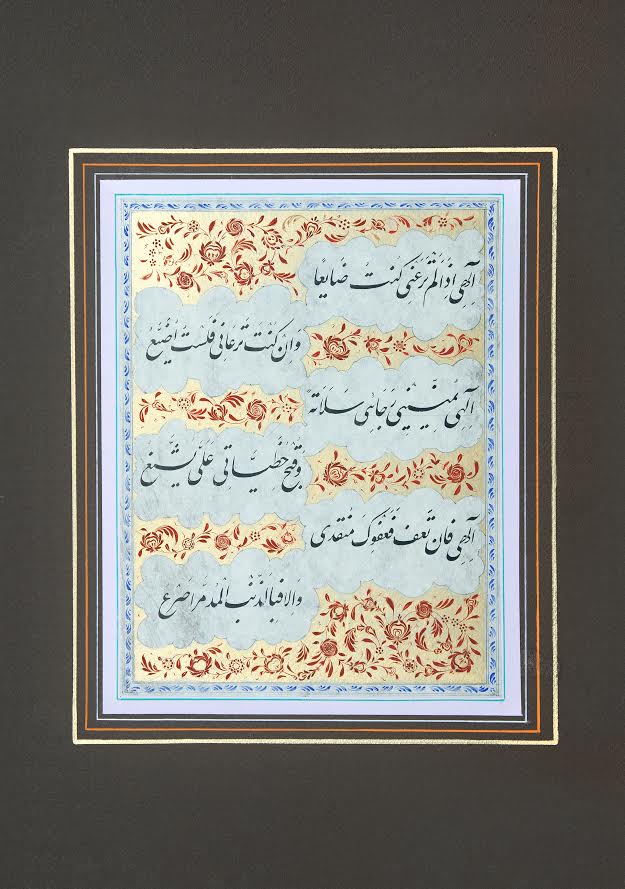 آلهِی اِذا لَم تَرعَنی کُنتُ ضایعًا
وَان کُنتَ تَرعانی فَلَستُ اُضَیَّعُ
آلهی یُمَنّینی رَجائی سَلامَةً
وَقُبحُ خَطیاتی عَلَیَّ یُشَنِّعُ
آلهِی فَان تَعفُ فَعَفوُکَ مُنقدی
وَالا فَبالذَّنبِ المُدَمَّرِ اُصرَعُ